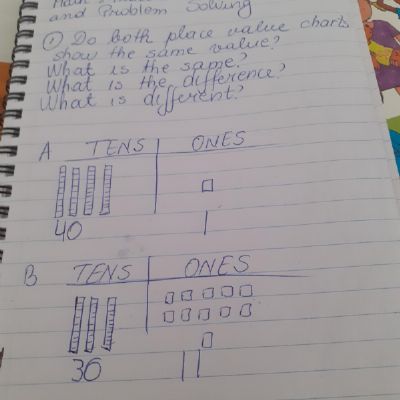 and Problem Solving
① Do both place value charts
show the same value?
What is the same?
What is the difference?
What is different?
A TENS ONES
40 1
B TENS ONES
30 11